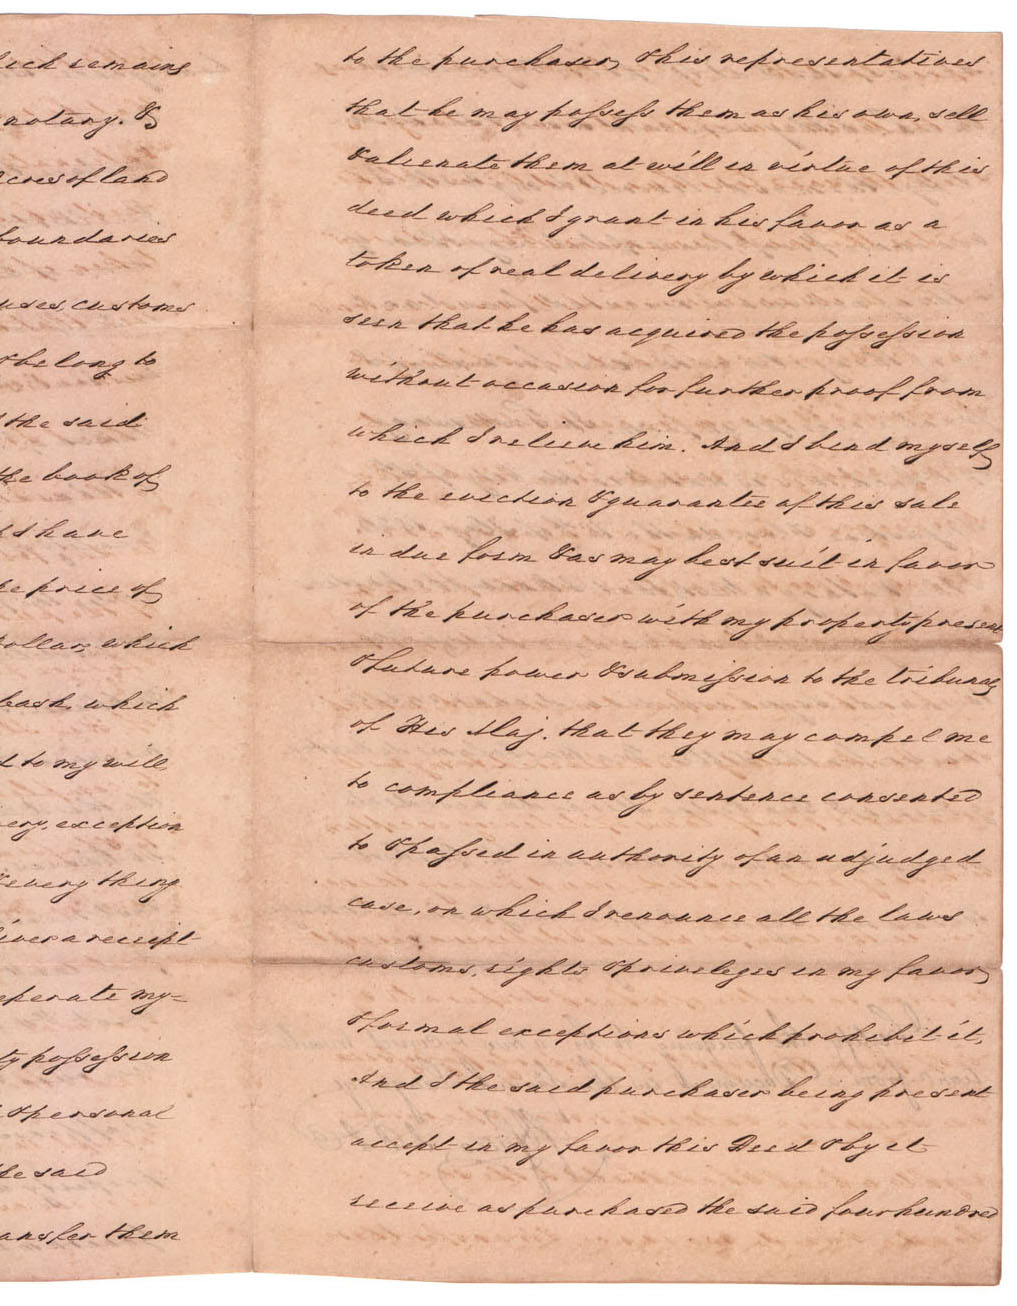 hich remains
notary. &
acres of land
boundaries
uses, customs
& belong to
the said
the book of
I have
he price of
Dollars, which
Cash, which
to my will,
ery, exception
& every thing
liver a receipt
eperate my=
ty possession
& personal
he said
ansfer them
to the purchaser, & his representatives
that he may possess them as his own, sell
& alienate them at will in virtue of this
deed which I grant in his favor as a
token of real delivery by which it is
seen that he has acquired the possession
without occasion for further proof from
which I relieve him. And I bind myself
to the eviction & guarantee of this sale
in due form & as may best suit in favor
of the purchaser with my property present
& future power & submission to the tribunes
of His Maj. that they may compel me
to compliance as by sentence consented
to & passed in authority of an adjudged
case, on which I renounce all the laws
customs, rights & priveleges in my favor,
& formal exceptions which prohibit it,
And I the said purchaser being present
accept in my favor this Deed & by it
receive as purchased the said four hundred